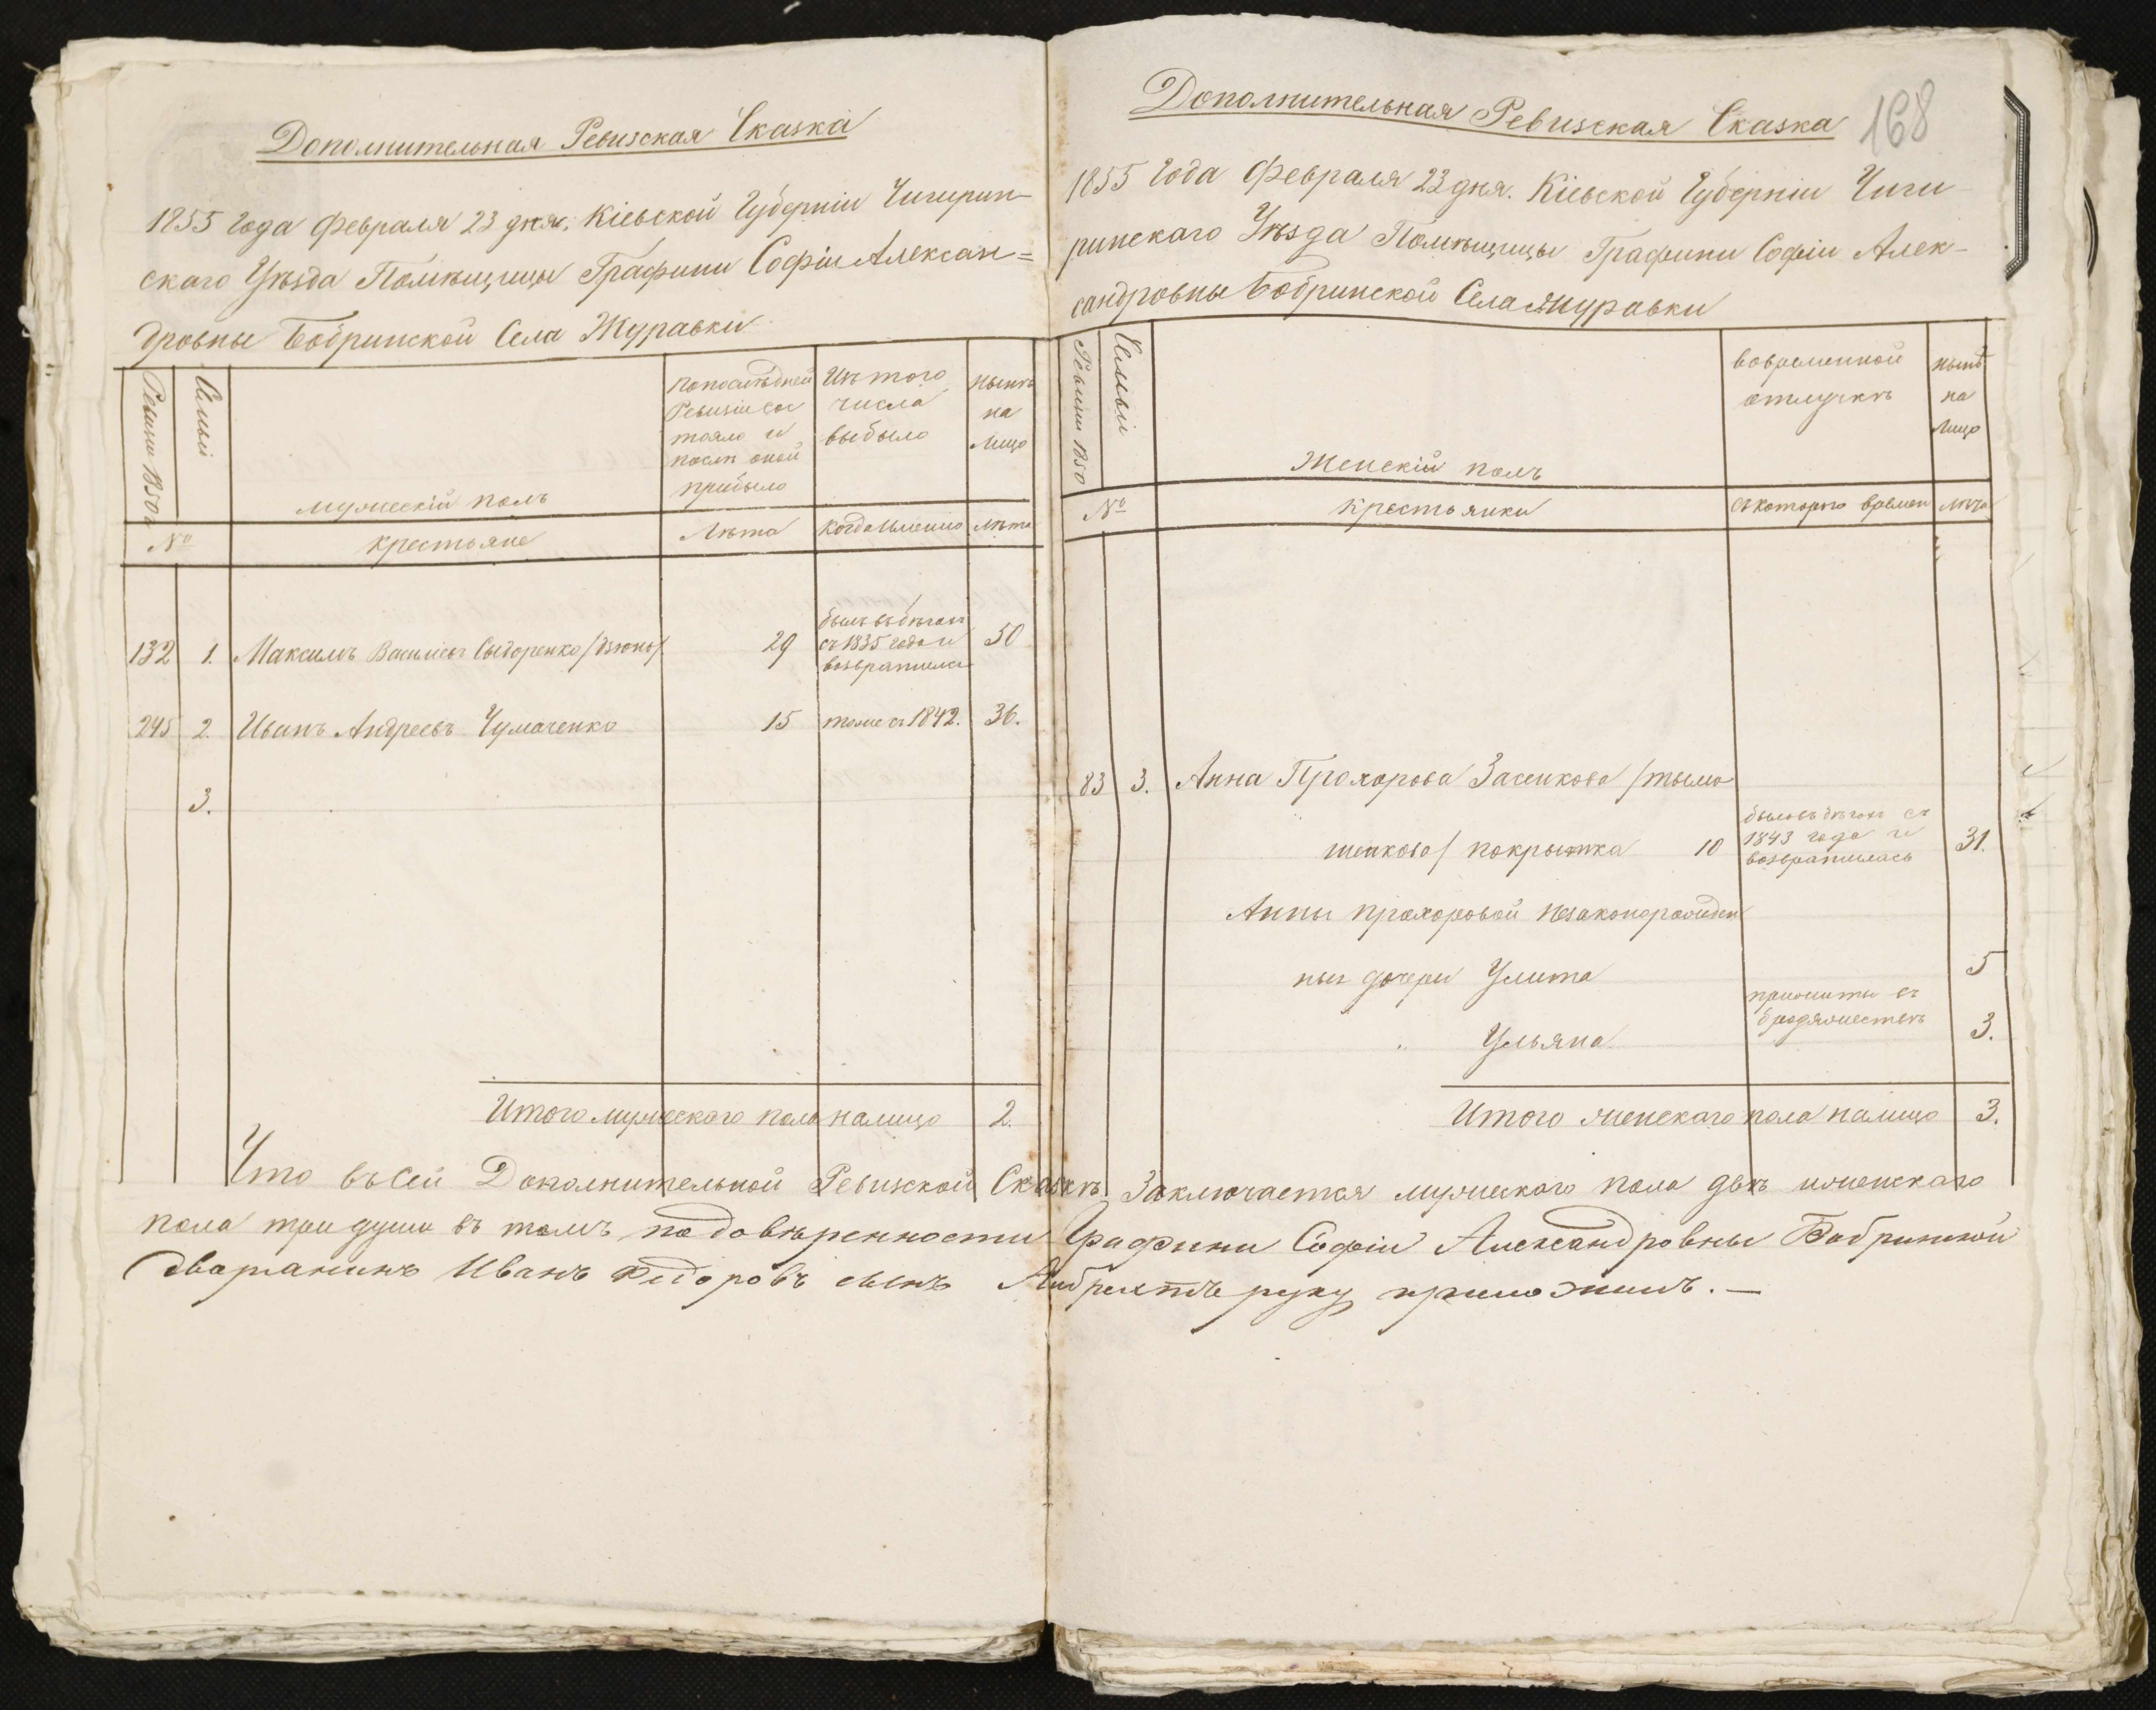 Дополнительная Ревизская Сказка
1855 года Февраля 23 дня, Кіевской Губерніи Чигирин-
скаго Уѣзда Помѣщицы Графини Софіи Алексан=
дровны Бобринской Села Журавки
Ревизіи 1850 г
Семьи
мужескій полъ
попослѣдней
Ревизіи сос
тояло и
послѣ оной
прибыло
Изъ того
числа
выбыло
нынѣ
на
лицо
№
крестьяне
Лѣта
Когда именно
лѣта
132 1. Максимъ Васильевъ Сидоренко 29
былъ въ бѣгахъ
съ 1835 года и
возвратился
50
245 2. Иванъ Андреевъ Чумаченко 15 тоже съ 1842. 36.
3.
Итого мужескаго пола налицо 2.
168
Дополнительная Ревизская Сказка
1855 Года Февраля 23 дня. Кіевской Губерніи Чиги
ринскаго Уѣзда Помѣщицы Графини Софіи Алек-
сандровны Бобринской Села Журавки
Ревизіи 1850
Семьи
Женскій полъ
вовременной
отлучкѣ
нынѣ
на
лицо
№
крестьянки
Съ которого времен
лѣта
83 3. Анна Прохорова Засенкова /тымо
шенкова/ покрытка 10
была въ бѣгахъ съ
1843 года и
возвратилась
31.
Анны прохоровой незаконорожден
ныя дочери Улита 5
прижиты въ
бродяжествѣ
" Ульяна 3.
Итого женскаго пола налицо 3.
Что въ сей Дополнительной Ревизской Сказкѣ Заключается мужескаго пола двѣ и женскаго
пола три души въ томъ по довѣренности Графини Софіи Александровны Бобринской
Дворянинъ Иванъ Федоровъ сынъ руку приложилъ. —